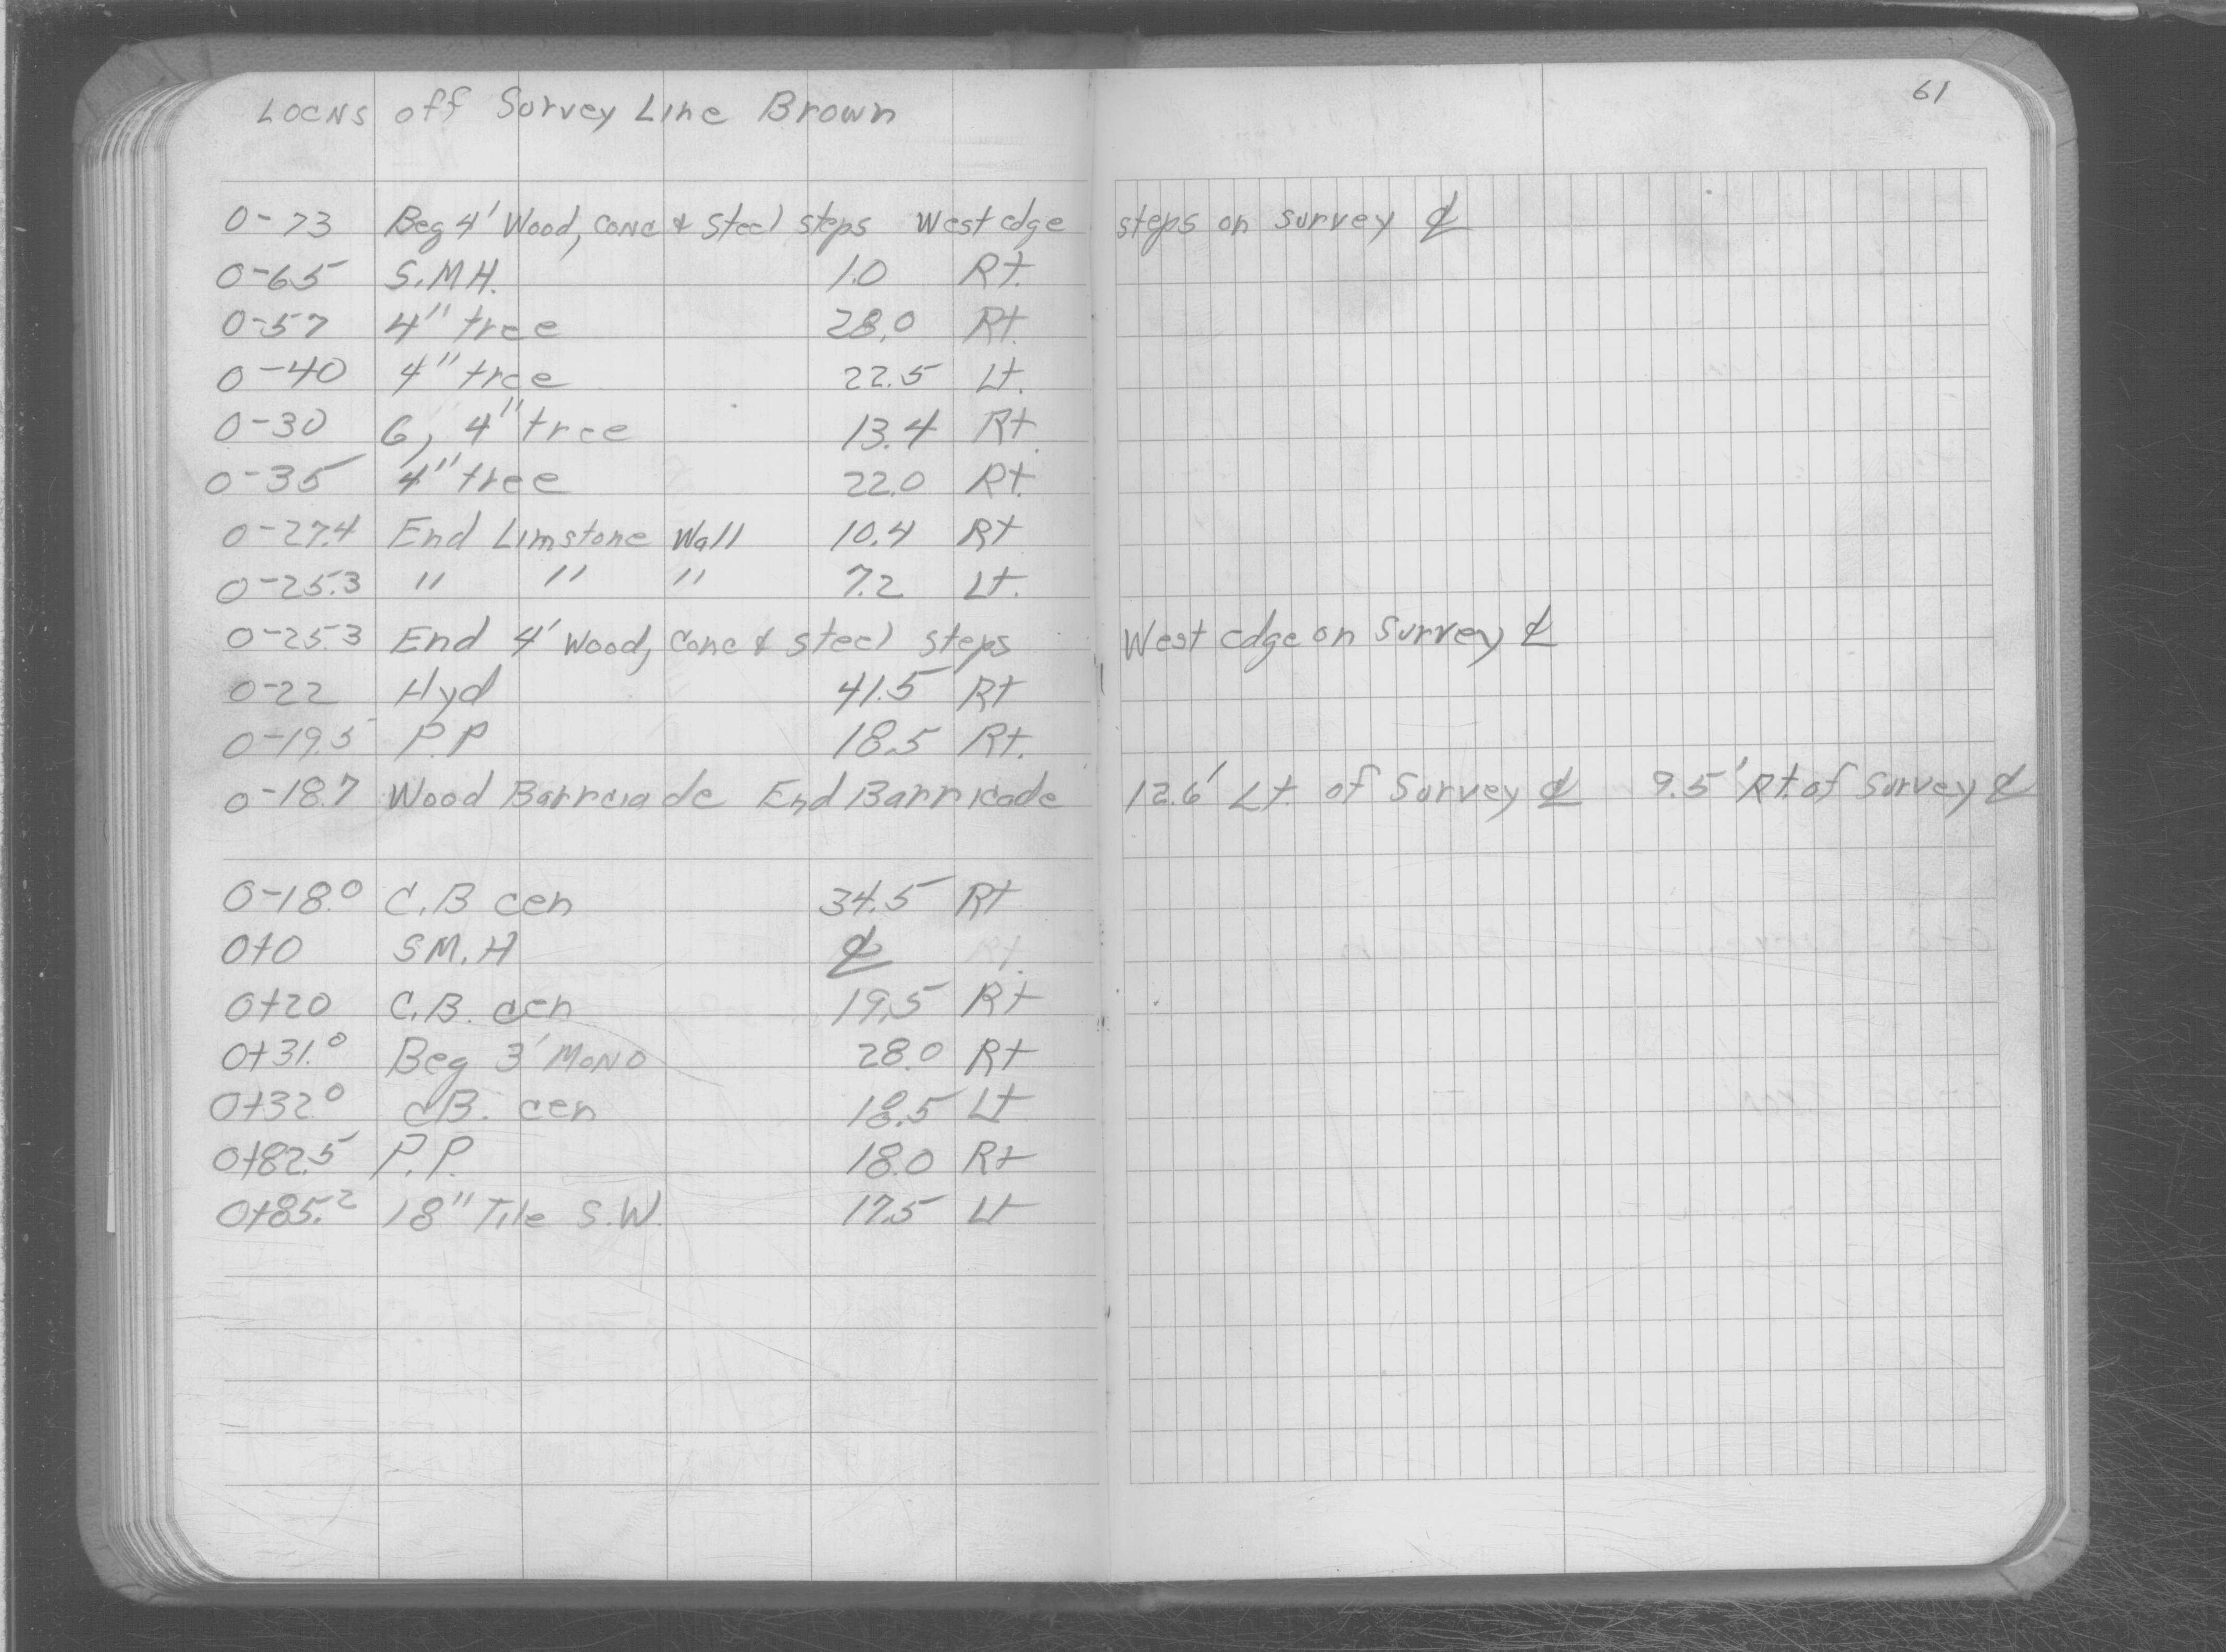 61
Locns off Survey Line Brown
0-73 Beg 4' Wood, Conc & Steel steps West edge steps on survey ℄
0-65 S.M.H. 1.0 Rt.
0-57 4" tree 28.0 Rt.
0-40 4" tree 22.5 Lt.
0-30 6, 4" tree 13.4 Rt.
0-35 4" tree 22.0 Rt.
0-27.4 End Limstone Wall 10.4 Rt
0-25.3 " " " 7.2 Lt.
0-25.3 End 4' Wood, Conc & steel steps West edge on Survey ℄
0-22 Hyd 41.5 Rt
0-19.5 P.P 18.5 Rt.
0-18.7 Wood Barrciade End Barricade 12.6' Lt. of Survey ℄ 9.5' Rt. of Survey ℄
0-18.0 C.B cen 34.5 Rt
0+0 S M.H ℄
0+20 C.B. cen 19.5 Rt
0+31.0 Beg 3' Mono 28.0 Rt
0+32.0 CB. cen 18.5 Lt
0+82.5 P.P. 18.0 Rt
0+85.2 18" Tile S.W. 17.5 Lt